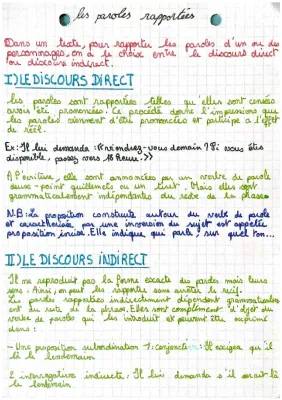 les paroles rapportées
Dans un texte, pour rapporter les paroles d'un ou des
personnages, on a le choix entre le discours direct
ou discours indirect.
I) LE DISCOURS DIRECT
Les paroles sont rapportées telles qu'elles sont censés
avoir été prononcées. Ce procédé donne l'impression que
les paroles viennent d'être prononcées et participe a l'effet
de réel.
Ex: Il lui demanda : «viendrez-vous demain ? Si vous êtes
disponible, passez vers 16 heure.»
A l'écriture, elle sont annoncées par un verbe de parole
deux-point guillemets ou un tiret. Mais elles sont
grammaticalement indépendantes du reste de la phrase
N.B: La proposition constituée autour du verbe de parole
et caractérisée par une inversion du sujet est appelée
proposition incise. Elle indique qui parle, sur quel ton...
II) LE DISCOURS INDIRECT
Il ne reproduit pas la forme exacte des paroles mais leur
sens. Ainsi, on peut les rapporter sans rompre le récit.
Les paroles rapportées indirectement dépendent grammaticalement
du reste de la phrase. Elles sont complément d'objet du
verbe de paroles qui les introduit et peuvent être exprimé
dans :
- Une proposition subordination 1: conjonctive : Il exigea qu'il
là le lendemain
2 interrogative indirecte : Il lui demanda s'il serait là
le lendemain